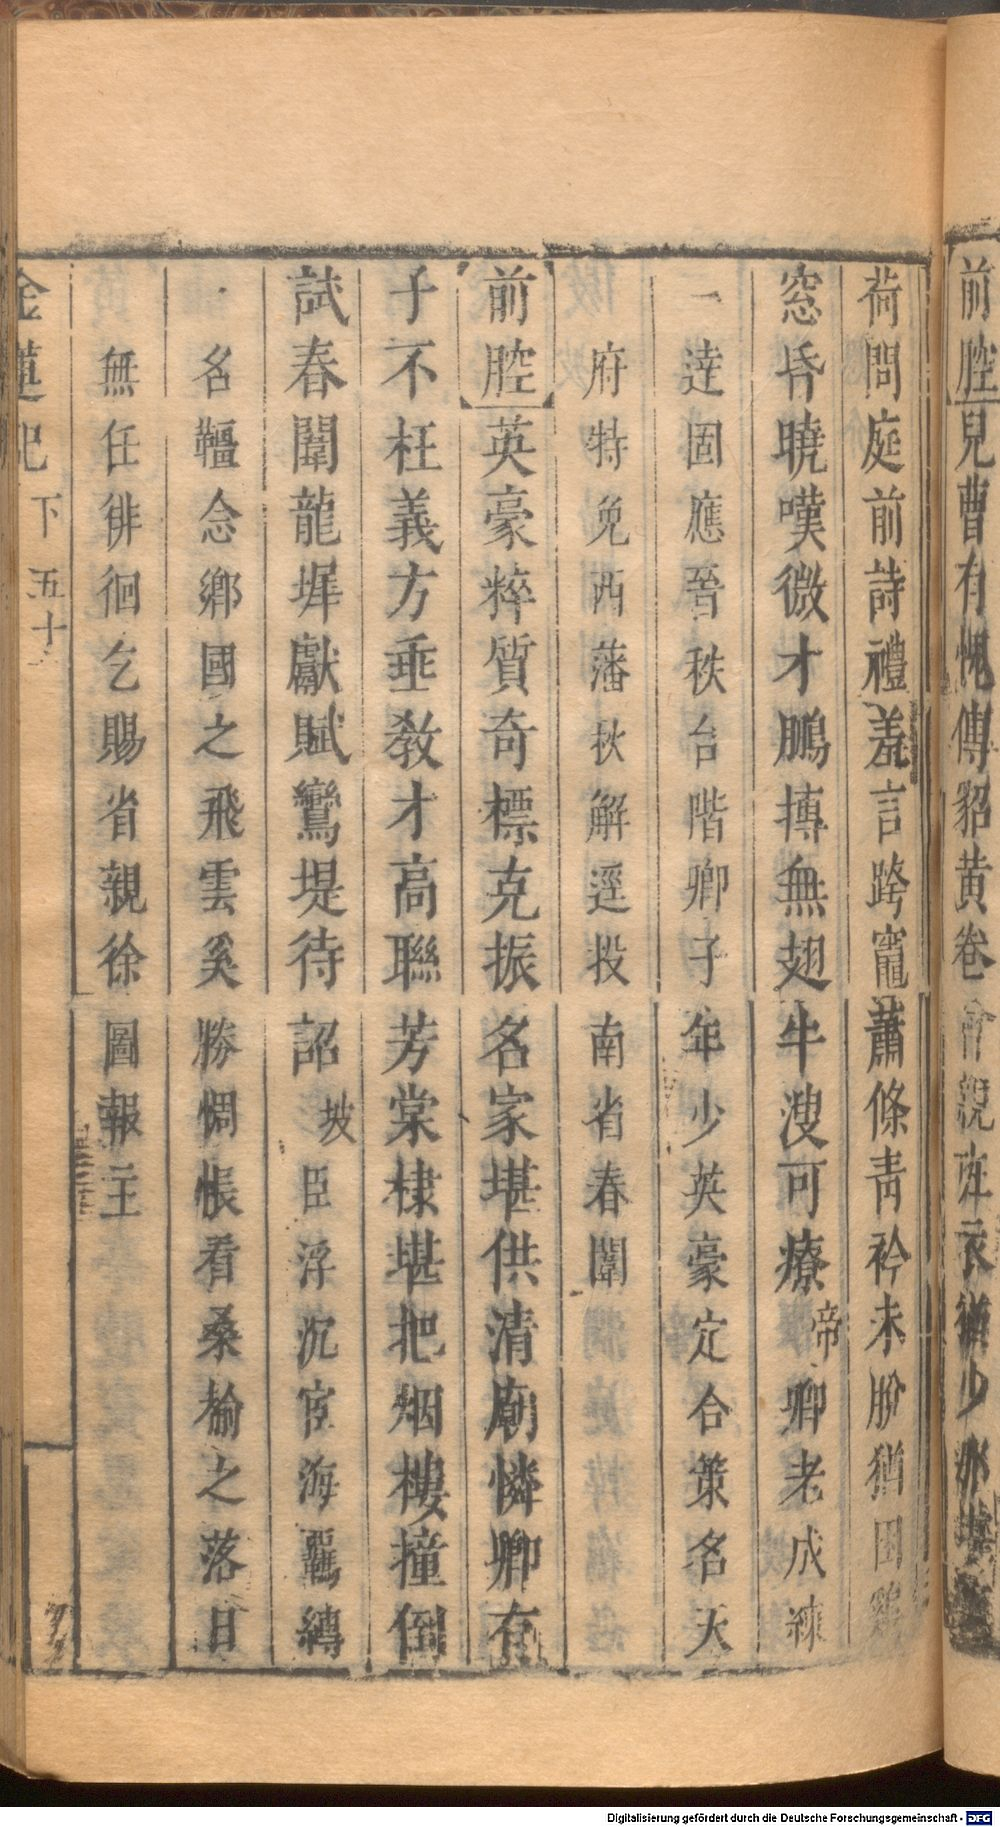 前腔兒曹有愧傳貂黃卷
荷問庭前詩禮羞言跨竈蕭條青衿未脫猶困
窓昏曉嘆微才鵬摶無翅牛溲可療帝卿老成練
一達固應晉秩台階卿子年少英豪定合策名天
府特免西藩秋解逕投南省春闈
前腔英豪粹質奇標克振名家堪供清廟憐卿有
子不枉義方垂教才高聯芳棠棣堪把烟樓撞倒
試春闈龍墀獻賦鸞堤待詔坡臣浮沉宦海羈縛
名韁念鄉國之飛雲奚勝惆悵看桑榆之落日
無任徘徊乞賜省親徐圖報主
金蓮記 下 五十
Digitalisierung gefördert durch die Deutsche Forschungsgemeinschaft - DFG